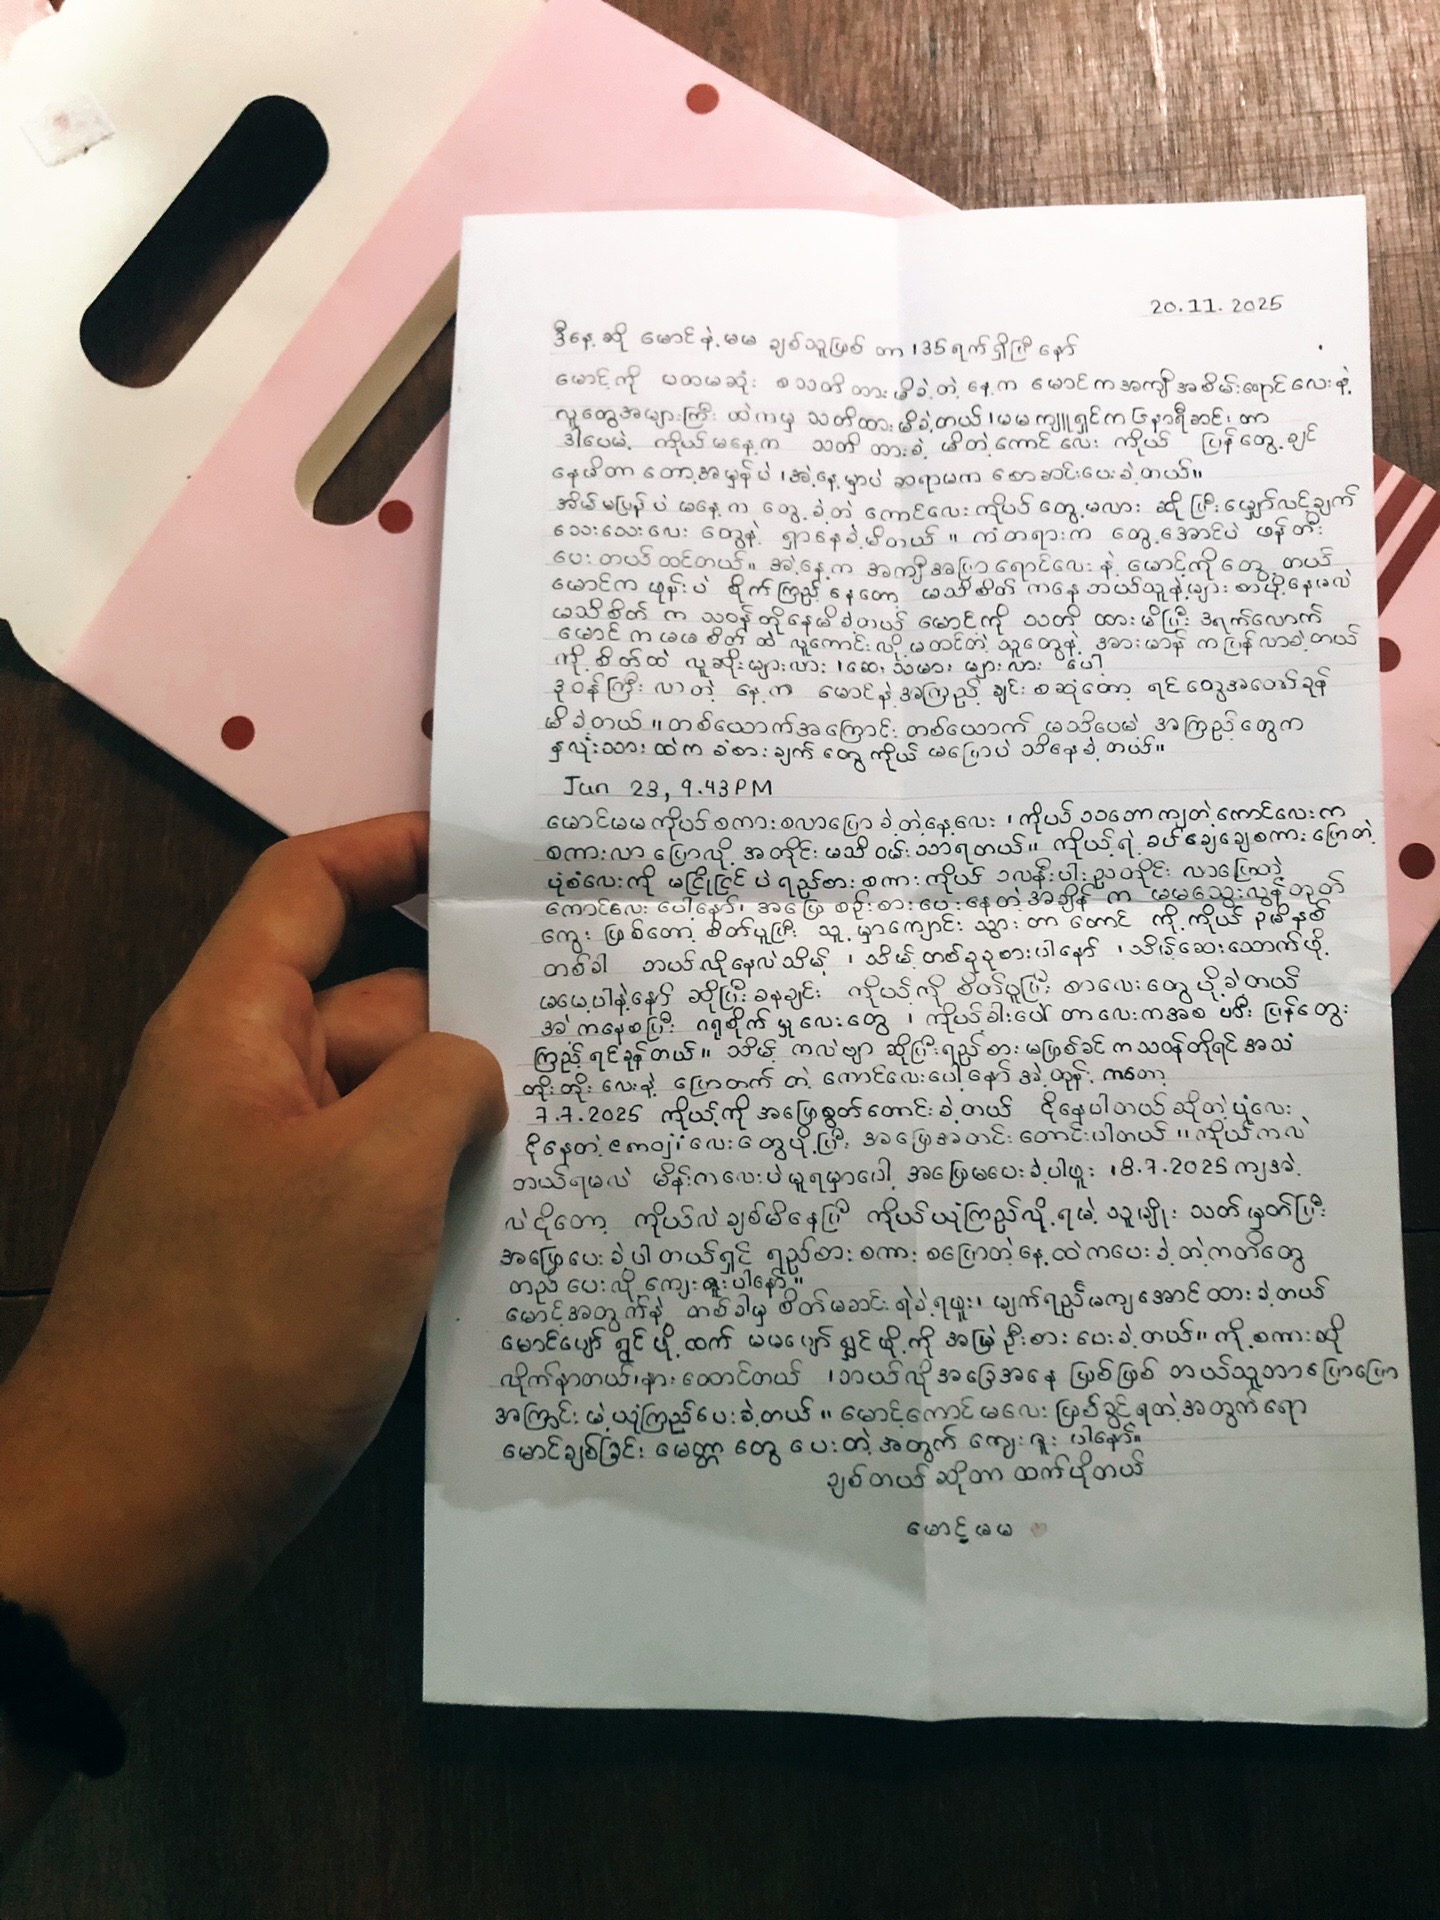 20.11.2025
ဒီနေ့ဆို မောင်နဲ့မမ ချစ်သူဖြစ်တာ 135ရက်ရှိပြီနော်
မောင့်ကို ပထမဆုံး စသတိထားမိခဲ့တဲ့နေ့က မောင်ကအကျီအစိမ်းရောင်လေးနဲ့
လူတွေအများကြီးထဲကမှ သတိထားမိခဲ့တယ်၊မမကျူရှင်က နာရီဆင်းတာ
ဒါပေမဲ့ ကိုယ်မနေ့က သတိထားခဲ့မိတဲ့ကောင်လေး ကိုယ် ပြန်တွေ့ချင်
နေမိတာတော့အမှန်ပဲ၊အဲ့နေ့မှာပဲ ဆရာမက စောဆင်းပေးခဲ့တယ်။
အိမ်မပြန်ပဲ မနေ့က တွေ့ခဲ့တဲ့ ကောင်လေးကိုပဲ တွေ့မလား ဆိုပြီး မျှော်လင့်ချက်
သေးသေးလေးတွေနဲ့ ရှာနေခဲ့မိတယ်။ ကံတရားက တွေ့အောင်ပဲ ဖန်တီး
ပေးတယ်ထင်တယ်။ အဲ့နေ့က အကျီအပြာရောင်လေးနဲ့ မောင့်ကိုတွေ့တယ်
မောင်ကဖုန်းပဲ စိုက်ကြည့်နေတော့ မသိစိတ်ကနေ ဘယ်သူနဲ့များ စာပို့နေမလဲ
မသိစိတ်က သဝန်တိုနေမိခဲ့တယ် မောင့်ကို သတိထားမိပြီး 3ရက်လောက်
မောင်ကမမစိတ်ထဲ လူကောင်းလို့မထင်တဲ့ သူတွေနဲ့ အားမာန်ကပြန်လာခဲ့တယ်
ကို့စိတ်ထဲ လူဆိုးများလား၊ဆေးသမားများလားပေါ့
ဒုဝန်ကြီးလာတဲ့နေ့က မောင်နဲ့အကြည့်ချင်းစဆုံတော့ ရင်တွေအသေခုန်
မိခဲ့တယ်။တစ်ယောက်အကြောင်းတစ်ယောက် မသိပေမဲ့ အကြည့်တွေက
နှလုံးသားထဲက ခံစားချက်တွေကိုယ် မပြောပဲ သိနေခဲ့တယ်။
Jun 23, 9.43PM
မောင်မမကိုပဲ စကားစလာပြောခဲ့တဲ့နေ့လေး၊ကိုယ်သဘောကျတဲ့ကောင်လေးက
စကားလာပြောလို့ အတိုင်းမသိဝမ်းသာရတယ်။ ကိုယ့်ရဲ့ခပ်ချေချေစကားပြောတဲ့
ပုံစံလေးကို မငြိုငြင်ပဲ ရည်းစားစကားကိုယ် သလနီးပါးညတိုင်း လာပြောတဲ့
ကောင်လေးပေါ့နော်၊အဖြေစဉ်းစားပေးနေတဲ့အချိန်က မမသွေးလွန်တုတ်
ကွေးဖြစ်တော့ စိတ်ပူပြီး သူ့မှာကျောင်းသွားတာတောင် ကို့ကိုယ် ၃မိနစ်
တစ်ခါ ဘယ်လိုနေလဲသိမ့်၊သိမ့်တစ်ခုခုစားပါနော်၊သိမ့်ဆေးသောက်ဖို့
မမေ့ပါနဲ့နော် ဆိုပြီးခနချင်း ကိုယ့်ကို စိတ်ပူပြီးစာလေးတွေပို့ခဲ့တယ်
အဲ့ကနေစပြီး ဂရုစိုက်မှုလေးတွေ၊ကိုယ့်ခါးပေါ်တာလေးကအစ ပဇီးပြန်တွေး
ကြည့်ရင်ခုန်တယ်။ သိမ့်ကလဲဗျာ ဆိုပြီးရည်းစားမဖြစ်ခင်ကသဝန်တိုရင်အသံ
တိုးတိုးလေးနဲ့ ပြောတက်တဲ့ ကောင်လေးပေါ့နော် အဲ့တုန်းကတော့
7.7.2025 ကိုယ့်ကို အဖြေစွတ်တောင်းခဲ့တယ် ငိုနေပါတယ်ဆိုတဲ့ပုံလေး
ငိုနေတဲ့emojiလေးတွေပို့ပြီး အဖြေအတင်းတောင်းပါတယ်။ကိုယ်ကလဲ
ဘယ်ရမလဲ မိန်းကလေးပဲမူရမှာပေါ့ အဖြေမပေးခဲ့ပါဘူး၊8.7.2025ကျအဲ့
လဲငိုတော့ ကိုယ်လဲချစ်မိနေပြီ ကိုယ်ယုံကြည်လို့ရမဲ့သူမျိုး သတ်မှတ်ပြီး
အဖြေပေးခဲ့ပါတယ်ရှင် ရည်းစားစကားစပြောတဲ့နေ့ထဲကပေးခဲ့တဲ့ကတိတွေ
တည်ပေးလို့ကျေးဇူးပါနော်။
မောင့်အတွက်နဲ့ တစ်ခါမှစိတ်မဆင်းရဲခဲ့ရဖူး၊မျက်ရည်မကျအောင်ထားခဲ့တယ်
မောင်ပျော်ရွှင်ဖို့ထက် မမပျော်ရွှင်ဖို့ကို အမြဲဦးစားပေးခဲ့တယ်။ကို့စကားဆို
လိုက်နာတယ်၊နားထောင်တယ်၊ဘယ်လိုအခြေအနေဖြစ်ဖြစ် ဘယ်သူဘာပြောပြော
အကြွင်းမဲ့ယုံကြည်ပေးခဲ့တယ်။မောင့်ကောင်မလေးဖြစ်ခွင့်ရတဲ့အတွက်ရော
မောင်ချစ်ခြင်းမေတ္တာတွေပေးတဲ့အတွက်ကျေးဇူးပါနော်။
ချစ်တယ်ဆိုတာထက်ပိုတယ်
မောင့်မမ